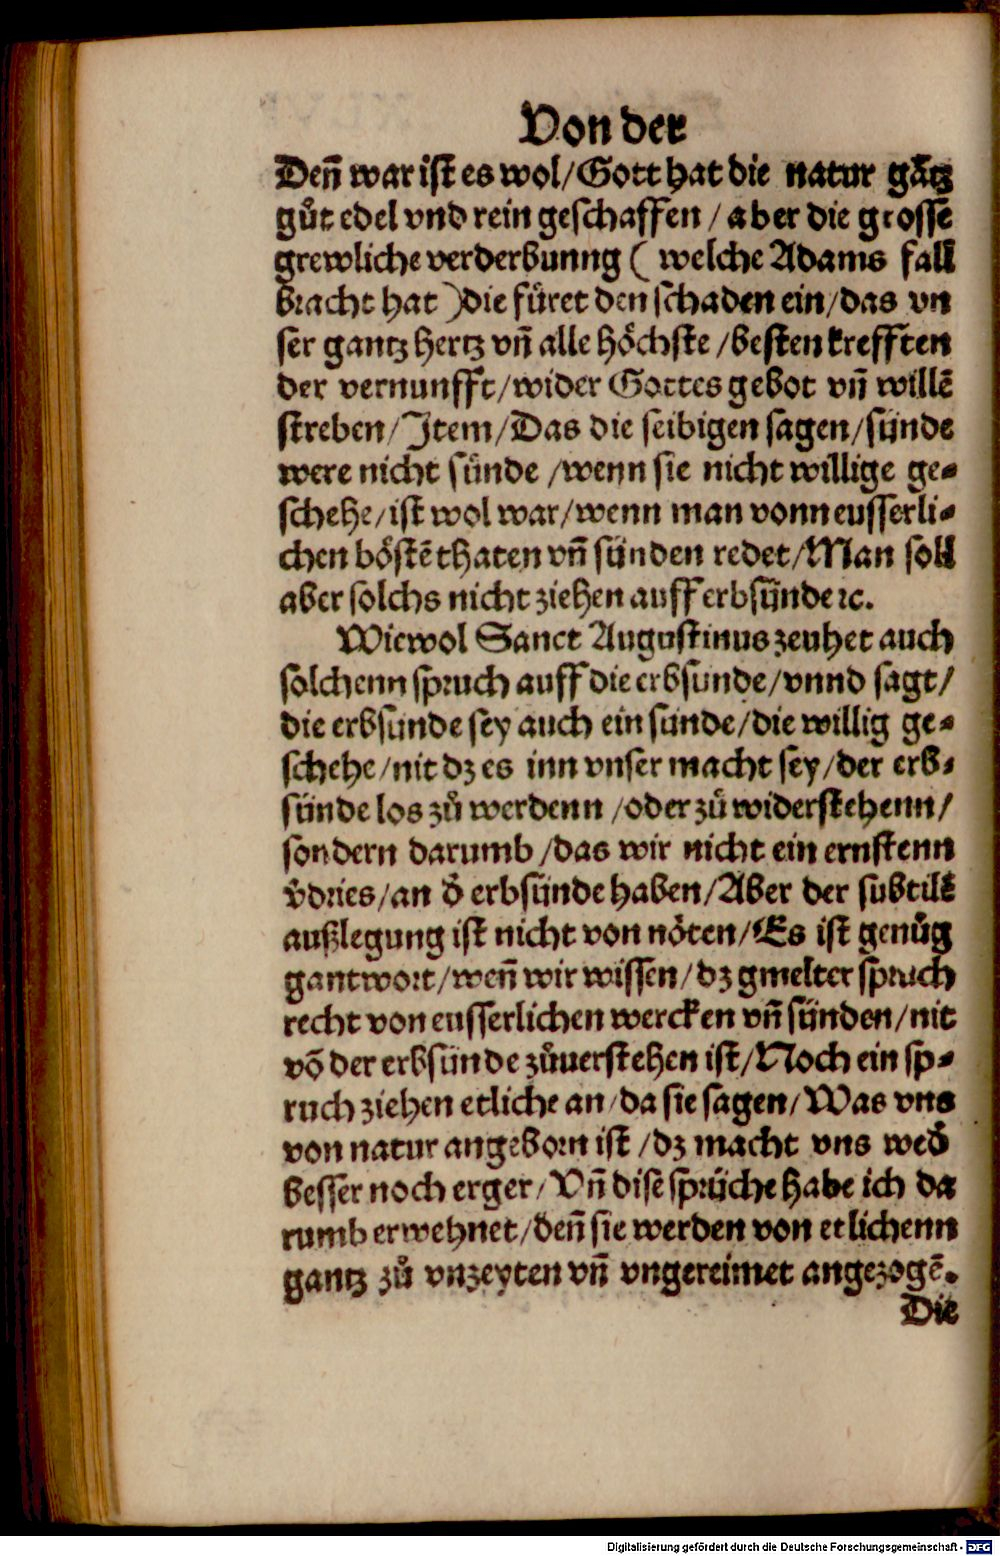 Von der
Deñ war ist es wol/Gott hat die natur gãtz
gůt edel vnd rein geschaffen/aber die grosse
grewliche verderbunng ( welche Adams fall
bracht hat )die füret den schaden ein/das vn
ser gantz hertz vñ alle höchste/besten krefften
der vernunfft/wider Gottes gebot vñ willẽ
streben/Item/Das die seibigen sagen/sünde
were nicht sünde/wenn sie nicht willige ge⸗
schehe/ist wol war/wenn man vonn eusserli⸗
chen böstẽ thaten vñ sünden redet/Man soll
aber solchs nicht ziehen auff erbsünde ꝛc.
Wiewol Sanct Augustinus zeuhet auch
solchenn spruch auff die erbsunde/vnnd sagt/
die erbsunde sey auch ein sunde/die willig ge⸗
schehe/nit dz es inn vnser macht sey/der erb⸗
sünde los zů werdenn/oder zů widerstehenn/
sondern darumb/das wir nicht ein ernstenn
v̊dries/an d̾ erbsünde haben/Aber der subtile
außlegung ist nicht von nöten/Es ist genůg
gantwort/weñ wir wissen/dz gmelter spruch
recht von eusserlichen wercken vñ sünden/nit
võ der erbsünde zůuerstehen ist/Noch ein sp⸗
ruch ziehen etliche an/da sie sagen/Was vns
von natur angeborn ist/dz macht vns wed̾
besser noch erger/Vñ dise sprüche habe ich da
rumb erwehnet/deñ sie werden von etlichenn
gantz zů vnzeyten vñ vngereimet angezogẽ.
Die
Digitalisierung gefördert durch die Deutsche Forschungsgemeinschaft - DFG